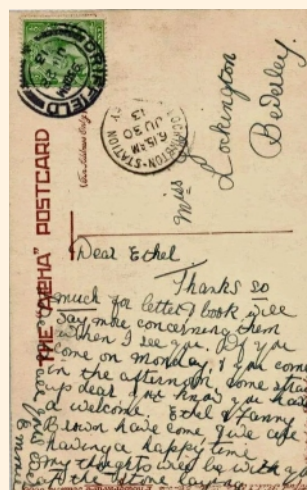 THE "ALPHA" POSTCARD
DRIFFIELD
LOCKINGTON-STATION
6.15 AM
JU 30
13
Miss
Lockington
Beverley.
Dear Ethel.
Thanks so
much for letter & book will
say more concerning them
when I see you. If you
come on Monday, & you come
in the afternoon come straight
ups dear you know you have
a welcome. Ethel & Fanny
Brown have come
having a happy time
my thoughts will be with you
at the stone laying